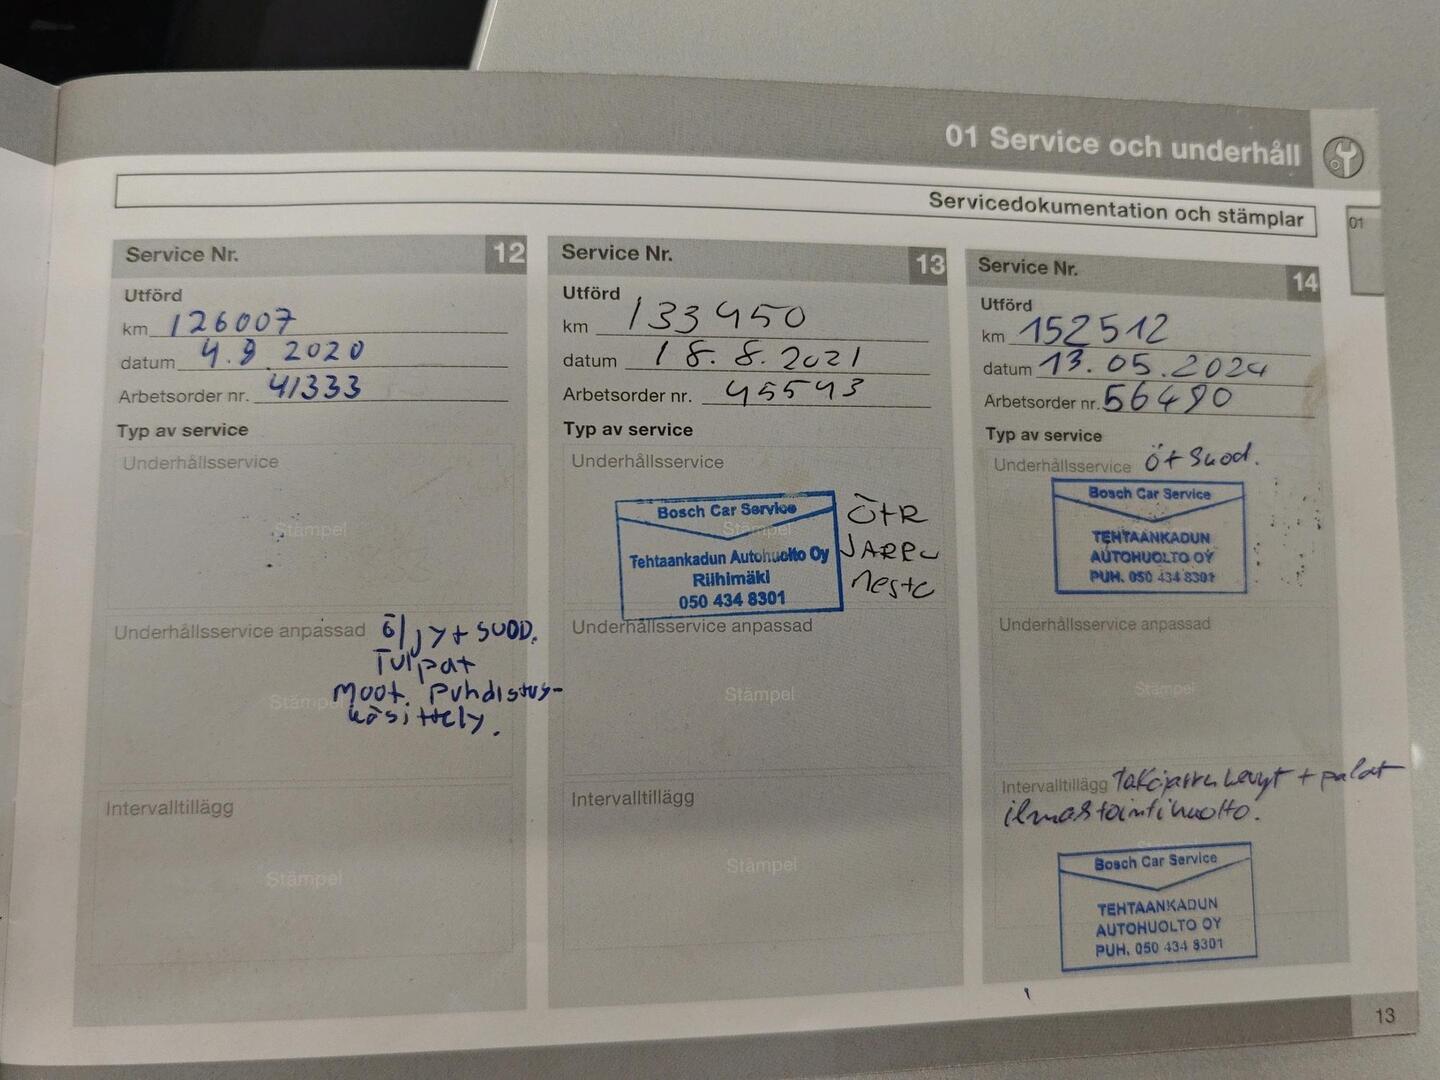 01 Service och underhåll
Servicedokumentation och stämplar
01
Service Nr. 12
Utförd
km 126007
datum 4.9 2020
Arbetsorder nr. 41333
Typ av service
Underhållsservice
Stämpel
Underhållsservice anpassad öljy + SUOD.
Tulpat
Stämpel
moot. puhdistus-
käsittely.
Intervalltillägg
Stämpel
Service Nr. 13
Utförd
km 133450
datum 18.8.2021
Arbetsorder nr. 45543
Typ av service
Underhållsservice
Stämpel
Bosch Car Service
Tehtaankadun Autohuolto Oy
Riihimäki
050 434 8301
Ö+R
JARRU
neste
Underhållsservice anpassad
Stämpel
Intervalltillägg
Stämpel
Service Nr. 14
Utförd
km 152512
datum 13.05.2024
Arbetsorder nr. 56490
Typ av service
Underhållsservice ö+suod.
Bosch Car Service
TEHTAANKADUN
AUTOHUOLTO OY
PUH. 050 434 8301
Underhållsservice anpassad
Stämpel
Intervalltillägg takajarru levyt + palat
ilmastointihuolto.
Bosch Car Service
TEHTAANKADUN
AUTOHUOLTO OY
PUH. 050 434 8301
13